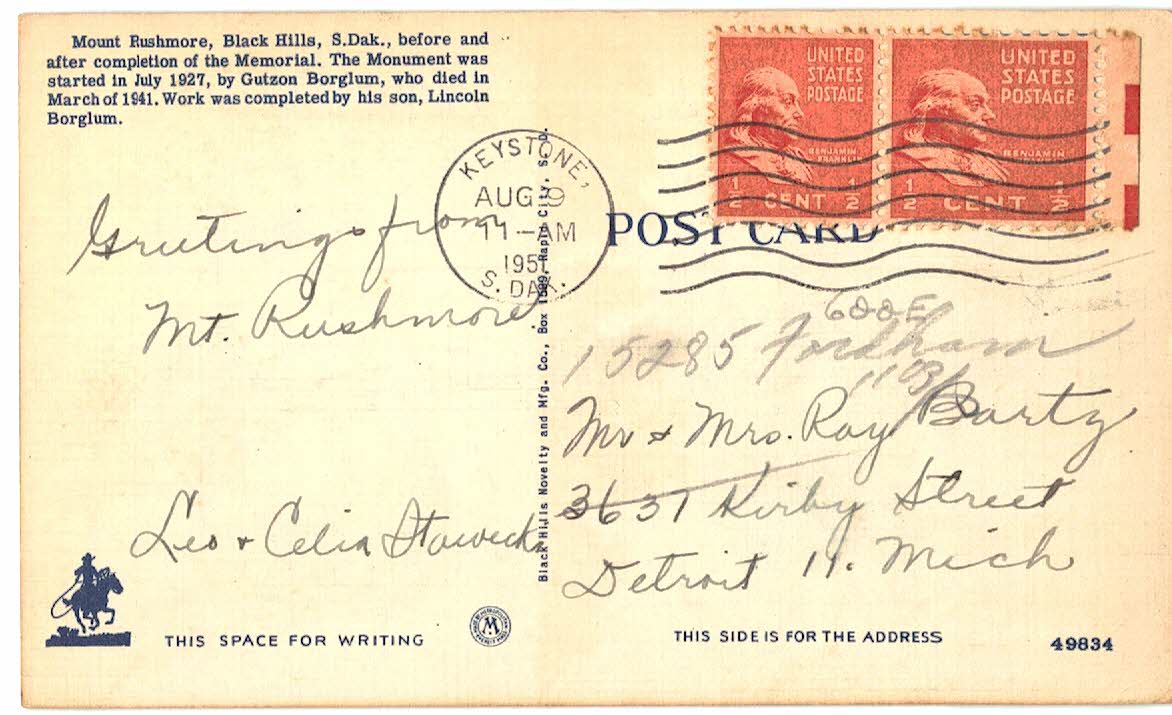 Mount Rushmore, Black Hills, S.Dak., before and
after completion of the Memorial. The Monument was
started in July 1927, by Gutzon Borglum, who died in
March of 1941. Work was completed by his son, Lincoln
Borglum.
UNITED
STATES
POSTAGE
BENJAMIN
FRANKLIN
1/2 CENT 1/2
UNITED
STATES
POSTAGE
BENJAMIN
1/2 CENT 1/2
KEYSTONE,
AUG 9
11-AM
1951
S. DAK.
POST CARD
Greetings from
Mt. Rushmore
Leo & Celia
Black Hills Novelty and Mfg. Co., Box 1589, Rapid City, S. D.
15285 Fordham
Mr & Mrs. Ray Bartz
3637 Kirby Street
Detroit 11. Mich
THIS SPACE FOR WRITING
M
THIS SIDE IS FOR THE ADDRESS
49834